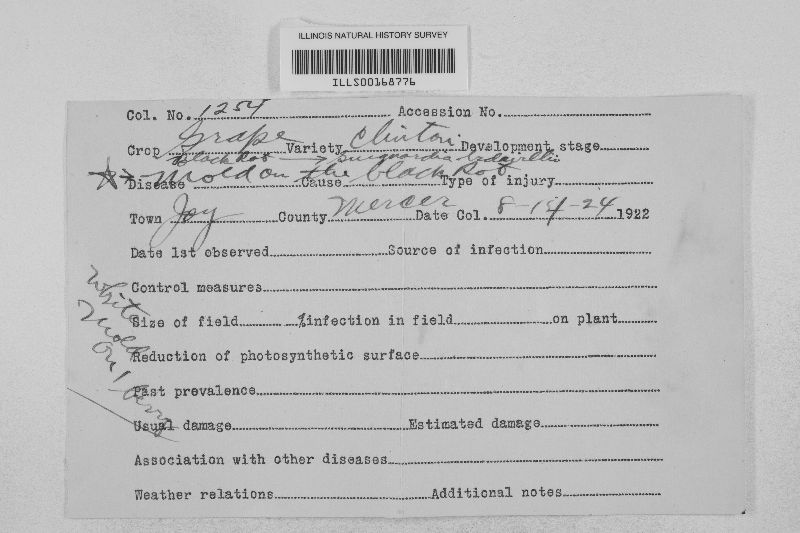 ILLINOIS NATURAL HISTORY SURVEY
ILLS00168776
Col. No. 1254 Accession No.
Crop Grape Variety Clinton Development stage
Black Rot → bidwellii
Disease Mold on the black Rot Cause Type of injury
Town Joy County Mercer Date Col. 8-14-24 1922
Date 1st observed Source of infection
Control measures
Size of field %infection in field on plant
Reduction of photosynthetic surface
Past prevalence
Usual damage Estimated damage
Association with other diseases
Weather relations Additional notes
White
Mold
on 1
berry